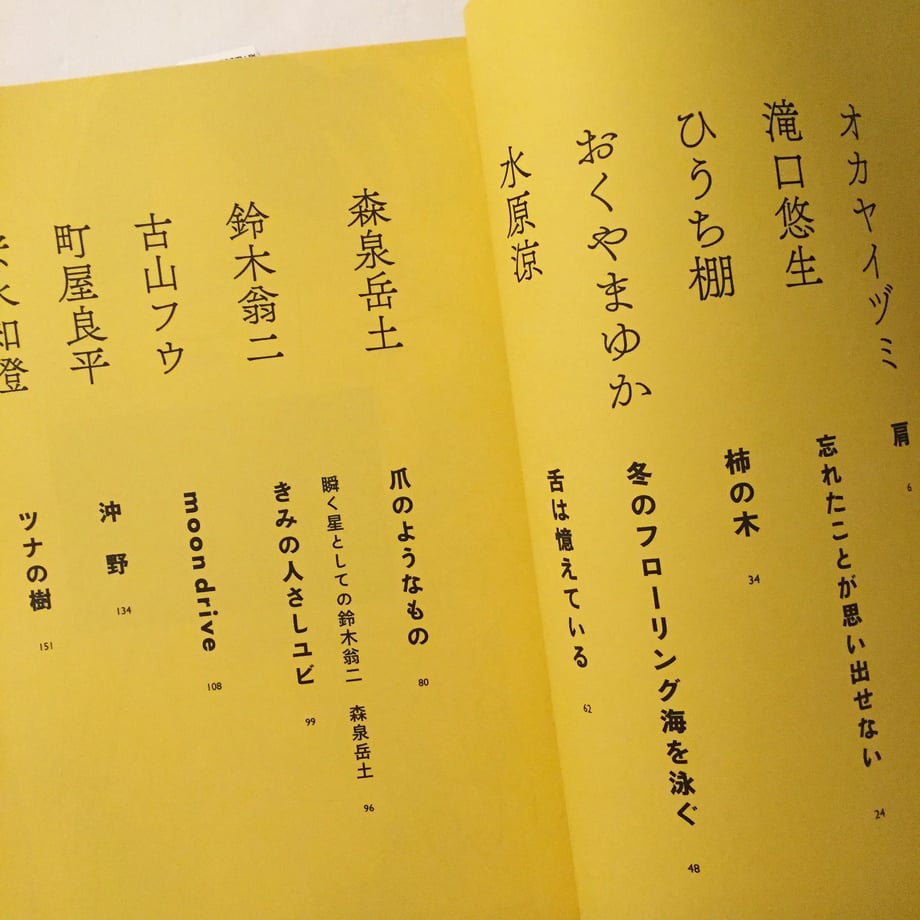 オカヤイヅミ
肩
6
滝口悠生
忘れたことが思い出せない
24
ひうち棚
柿の木
34
おくやまゆか
冬のフローリング海を泳ぐ
48
水原涼
舌は憶えている
62
森泉岳土
爪のようなもの
80
瞬く星としての鈴木翁二 森泉岳土
96
鈴木翁二
きみの人さしユビ
99
古山フウ
moon drive
108
町屋良平
沖野
134
知澄
ツナの樹
151